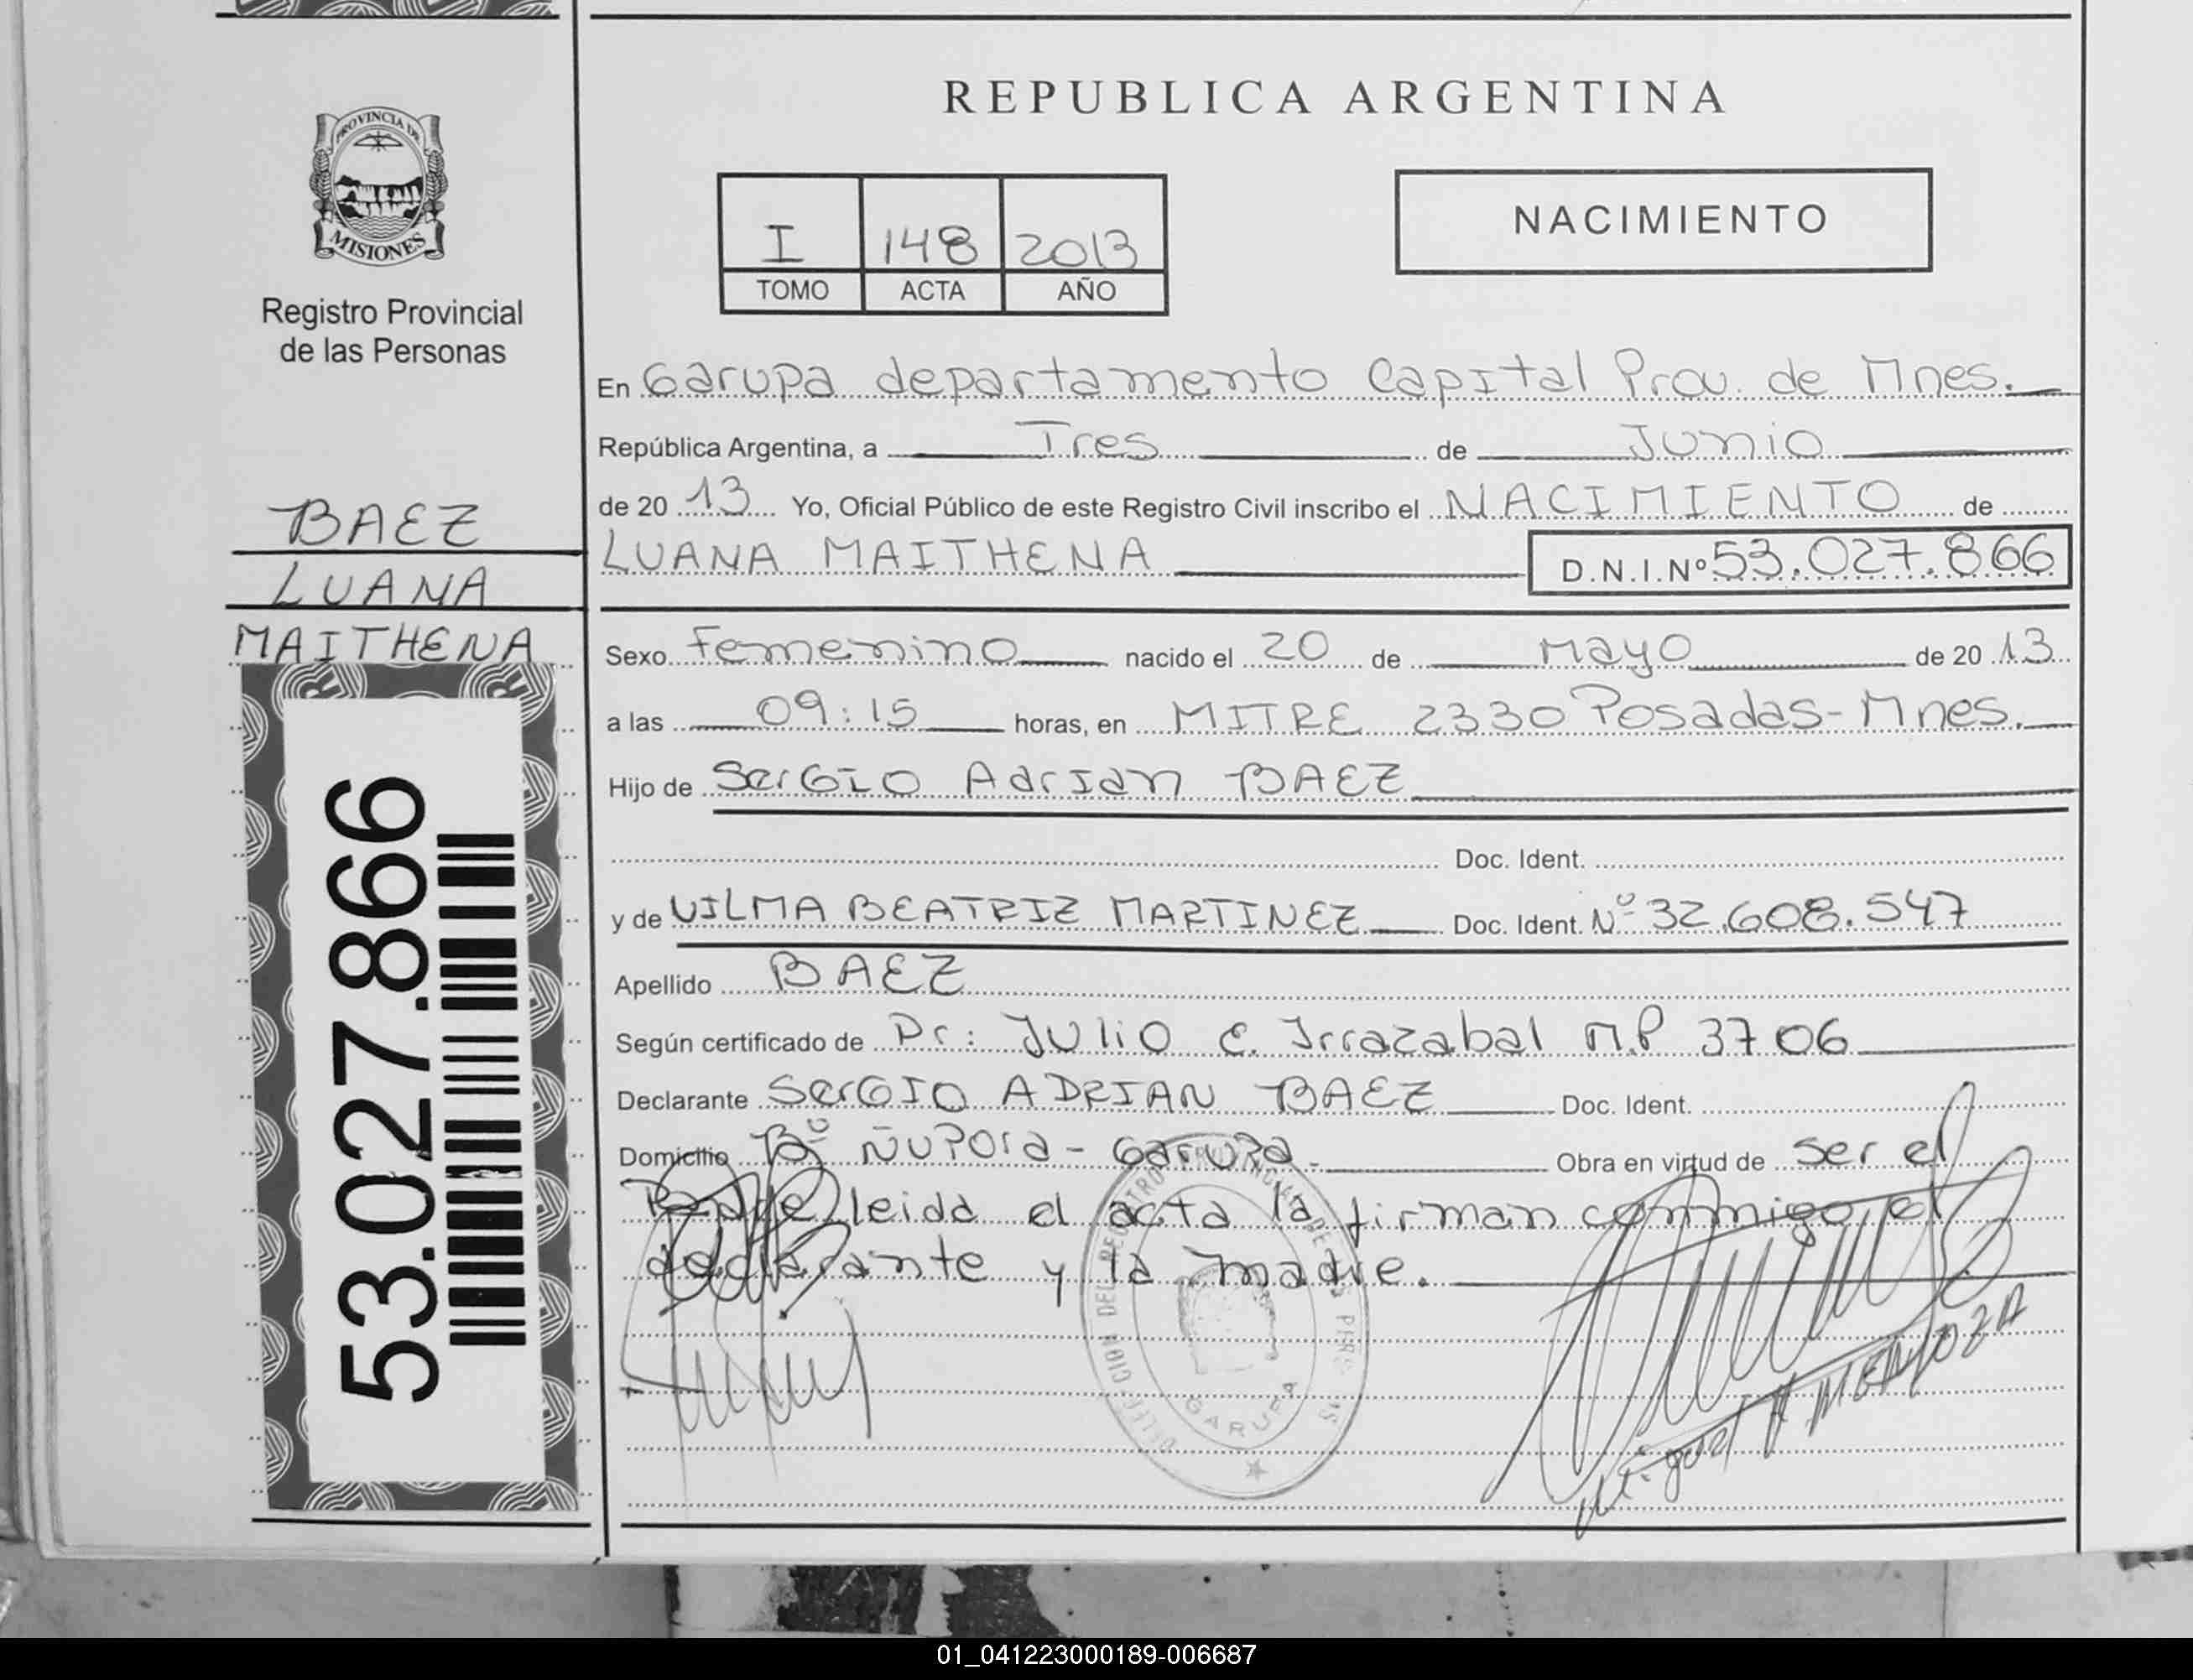 PROVINCIA DE
MISIONES
Registro Provincial
de las Personas
BAEZ
LUANA
MAITHENA
53.027.866
REPUBLICA ARGENTINA
I 148 2013
TOMO ACTA AÑO
NACIMIENTO
En Garupa departamento Capital Prov. de Mnes.
República Argentina, a Tres de Junio
de 20 13 Yo, Oficial Público de este Registro Civil inscribo el NACIMIENTO de
LUANA MAITHENA D.N.I.Nº 53.027.866
Sexo Femenino nacido el 20 de Mayo de 20 13
a las 09:15 horas, en MITRE 2330 Posadas - Mnes.
Hijo de Sergio Adrian BAEZ
Doc. Ident.
y de VILMA BEATRIZ MARTINEZ Doc. Ident. Nº 32.608.547
Apellido BAEZ
Según certificado de Dr: Julio C. Irrazabal M.P 3706
Declarante Sergio ADRIAN BAEZ Doc. Ident.
Domicilio Bº ÑUPORA - Garupa - Obra en virtud de ser el
Padre leida el acta la firman conmigo el
declarante y la madre.
GARUPA
Miguel A MENDOZA
01_041223000189-006687